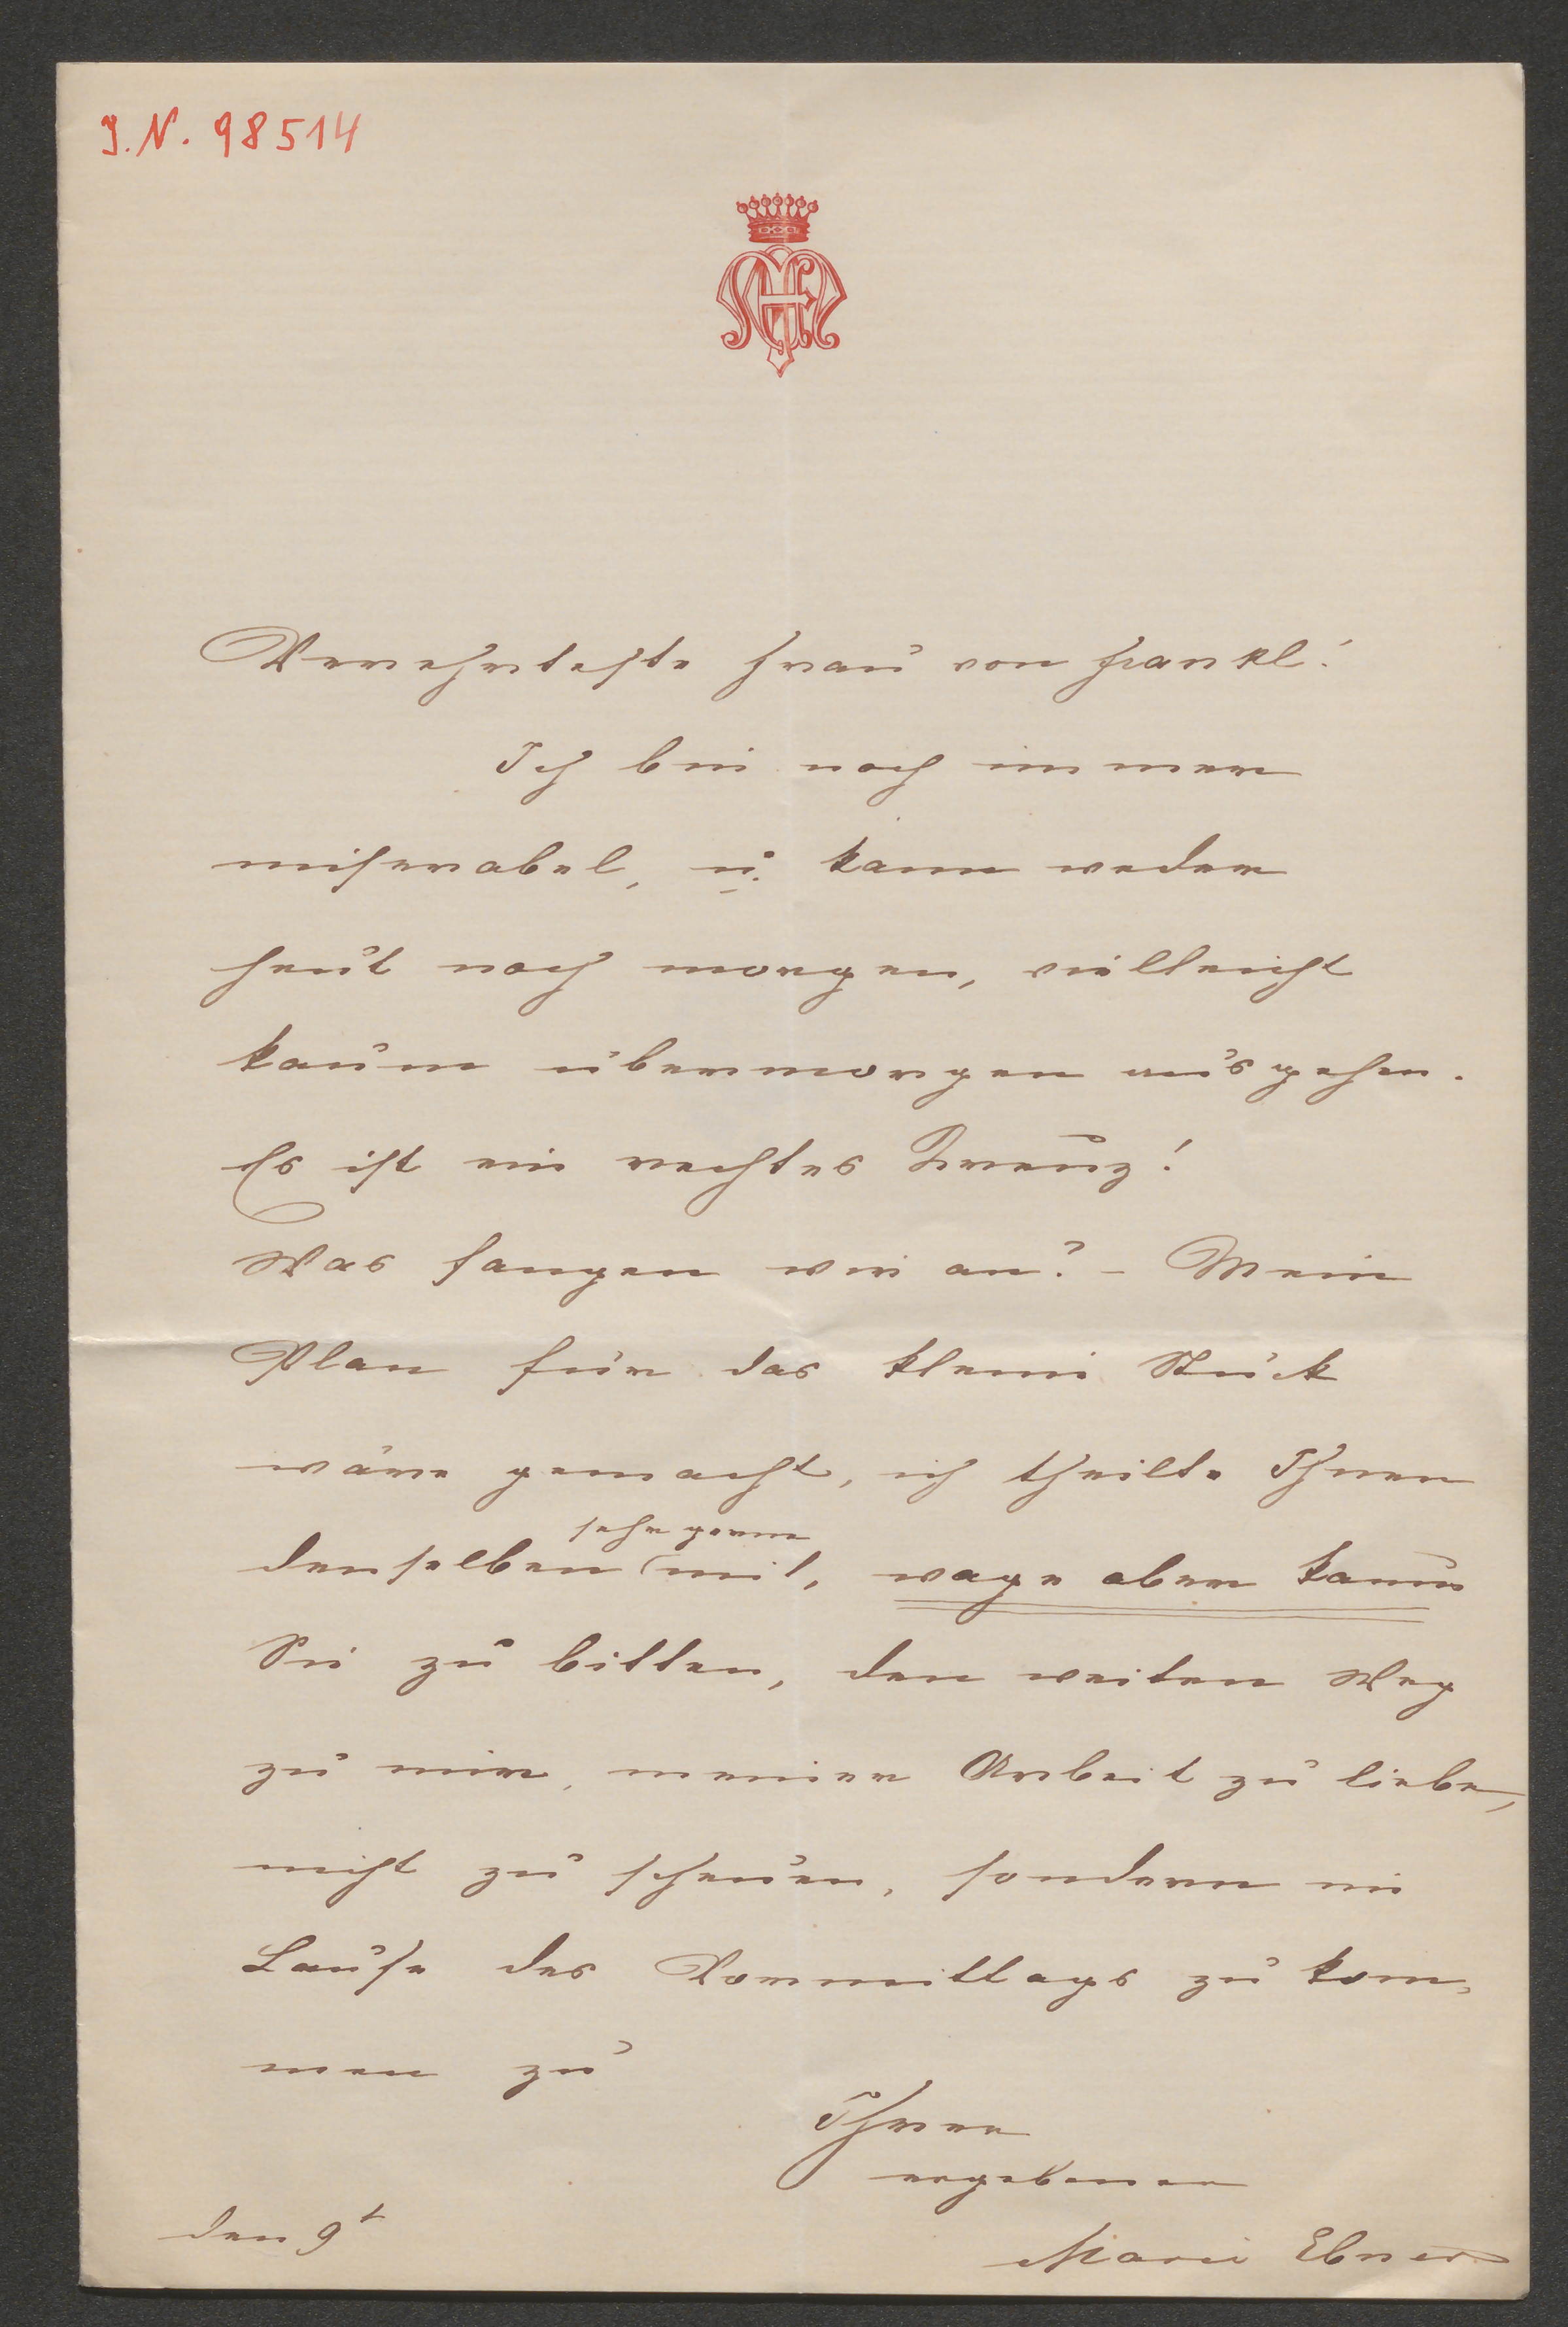 J. N. 98514
Verehrteste Frau von Frankl!
Ich bin noch immer
miserabel, u. kann weder
heut noch morgen, vielleicht
kaum übermorgen ausgehen.
Es ist ein rechtes Kreuz!
Was fangen wir an? – Mein
Plan für das kleine Stück
wäre gemacht, ich theilte Ihnen
sehr gerne
denselben mit, wage aber kaum
Sie zu bitten, den weiten Weg
zu mir, meiner Arbeit zu liebe,
nicht zu scheuen, sondern im
Laufe des Vormittags zu kom-
men zu
Ihrer
ergebenen
den 9t
Marie Ebner